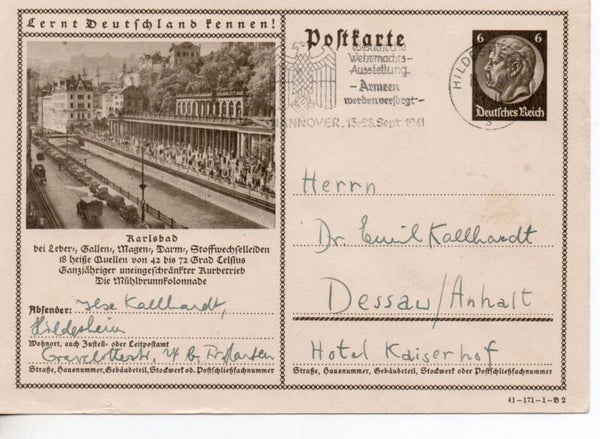 Lernt Deutschland kennen!
Postkarte
Wehrmachts-
Ausstellung
- Armeen
werden versorgt -
HANNOVER, 13-28. Sept. 1941
HILDES
6 6
Deutsches Reich
Karlsbad
bei Leber-, Gallen-, Magen-, Darm-, Stoffwechselleiden
18 heiße Quellen von 42 bis 72 Grad Celsius
Ganzjähriger uneingeschränkter Kurbetrieb
Die Mühlbrunnkolonnade
Absender: Ilse Kallhardt,
Hildesheim
Wohnort, auch Zustell- oder Leitpostamt
Gravelottestr.
Straße, Hausnummer, Gebäudeteil, Stockwerk od. Postschließfachnummer
Herrn
Dr. Emil Kallhardt
Dessau/Anhalt
Hotel Kaiserhof
Straße, Hausnummer, Gebäudeteil, Stockwerk oder Postschließfachnummer
41-171-1-B 2